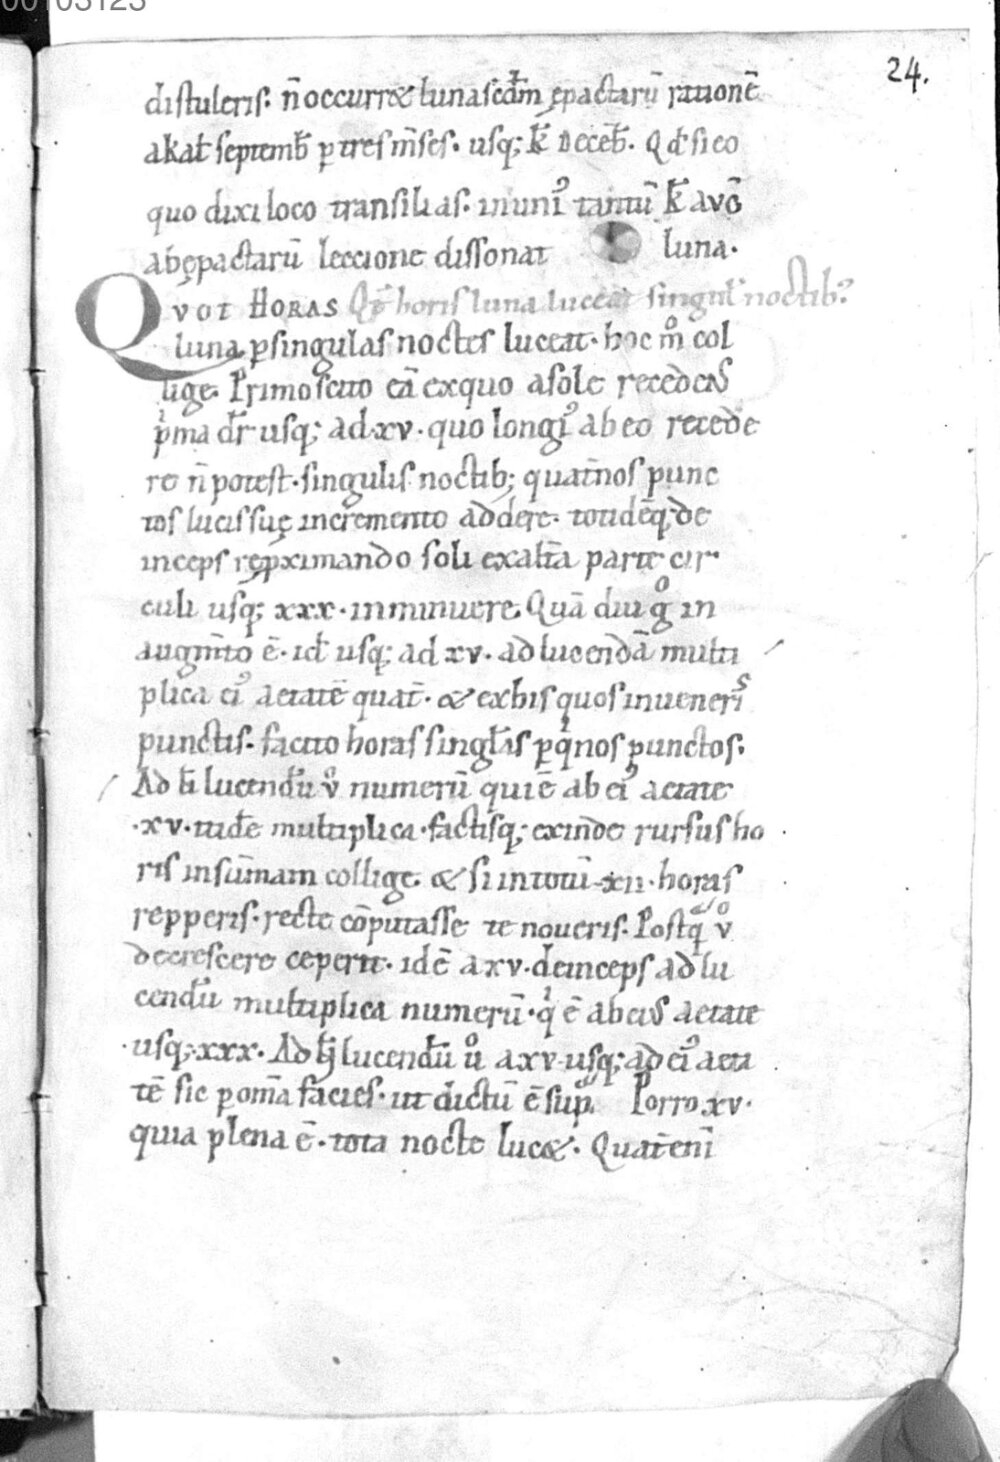 00103123
24.
distuleris. n̄ occurr& luna scdm̄ ępactarū rationē
a kal septemb̄ p tres m̄ses. usq; k̄ decēb̄. Qd si eo
quo dixi loco transilias. in uni᾿ tantū k̄ avḡ
ab ępactarū leccione dissonat luna.
QVOT HORAS Qt̄ horis luna luceat singul noctib᾿
luna p singulas noctes luceat. hoc m̊ col
lige. Primo scito eā ex quo a sole recedens
pͥma dr̄ usq; ad .xv. quo longi᾿ ab eo recede
re n̄ potest. singulis noctib; quat̄nos punc
tos lucis suę incremento addere. totidēq; de
inceps rep̱ximando soli ex alt̄a parte cir
culi usq; xxx. in minuere. Quādiu g̊ in
augm̄to ē. id usq; ad xv. ad lucendā multi
plica ei᾿ aetatē quat̄. & ex his quos inueneris
punctis. facito horas singlas p qͥnos punctos.
Ad h̄ lucendū v̊ numerū qui ē ab ei᾿ aetate
.xv. itidē multiplica. factisq; exinde rursus ho
ris in sūmam collige. & si in totū .xii. horas
repperis. recte cōputasse te noueris. Postq̄ v̊
decrescere ceperit. idē a xv. deinceps ad lu
cendū multiplica numerū. qͥ ē ab eius aetate
usq; xxx. Ad lucendū ů a xv usq; ad ei᾿ aeta
tē sic p om̄a facies. ut dictū ē sup. Porro .xv.
quia plena ē. tota nocte luc&. Quat̄ enī